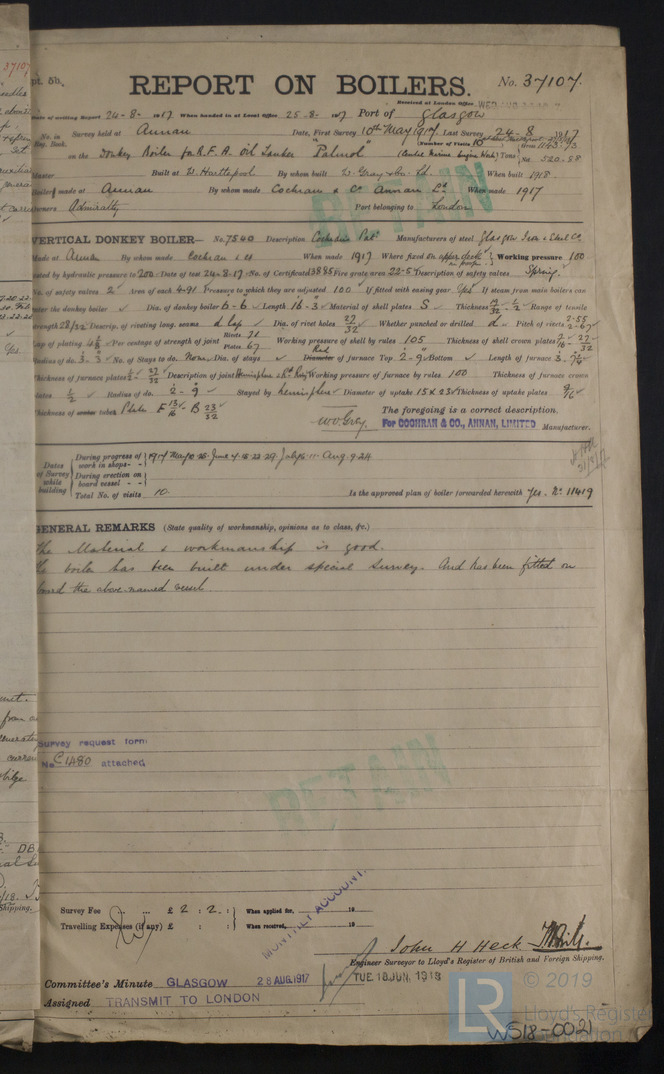 pt. 5b.
REPORT ON BOILERS.
No. 37107.
Received at London Office
Date of writing Report 24-8-1917 When handed in at Local Office 25.8.1917 Port of Glasgow
No. in Reg. Book. Survey held at Annan Date, First Survey 10th May 1917 Last Survey 24-8 1917
(Number of Visits 10
on the Donkey Boiler for R.F.A. Oil Tanker "Palmol" Tons
Master Built at W. Hartlepool By whom built W. Gray & Co. Ld. When built 1918
Boilers made at Annan By whom made Cochran & Co. Annan Ld. When made 1917
Owners Admiralty Port belonging to London
RETAIN
VERTICAL DONKEY BOILER— No. 7540 Description Cochran's Pat. Manufacturers of steel Glasgow Iron & Steel Co.
Made at Annan By whom made Cochran & Co When made 1917 Where fixed on upper deck Working pressure 100
tested by hydraulic pressure to 200 Date of test 24-8-17 No. of Certificate 13885 Fire grate area 22-5 Description of safety valves Spring
No. of safety valves 2 Area of each 4-91 Pressure to which they are adjusted 100 If fitted with easing gear Yes If steam from main boilers can
enter the donkey boiler ✓ Dia. of donkey boiler 6-6 Length 16-3 Material of shell plates S Thickness 19/32 - 1/2 Range of tensile
strength 28/32 Descrip. of riveting long. seams d lap Dia. of rivet holes 27/32 Whether punched or drilled d Pitch of rivets 2-55 2-67
Lap of plating Per centage of strength of joint Rivets 71 Plates 67 Working pressure of shell by rules 105 Thickness of shell crown plates 27/32
Radius of do. 3-3 No. of Stays to do. None Dia. of stays ✓ Rad of furnace Top 2-9 Bottom ✓ Length of furnace
Thickness of furnace plates 1/2 - 27/32 Description of joint Working pressure of furnace by rules 100 Thickness of furnace crown
plates 1/2 Radius of do. 2-9 Stayed by hemisphere Diameter of uptake 15 x 23 Thickness of uptake plates 9/16
Thickness of tubes Plate F 13/16 - B 23/32
The foregoing is a correct description.
For COCHRAN & CO., ANNAN, LIMITED Manufacturer.
Dates of Survey while building
During progress of work in shops - - 1917 May 10.25. June 4.15.22.29. July 6.11. Aug. 9.24
During erection on board vessel - -
Total No. of visits 10.
Is the approved plan of boiler forwarded herewith Yes. No. 11419
GENERAL REMARKS (State quality of workmanship, opinions as to class, &c.)
The Material & workmanship is good.
The boiler has been built under special survey. And has been fitted on
board the above named vessel
Survey request form
No. C1480 attached
RETAIN
MONTHLY ACCOUNT.
Survey Fee ... ... £ 2 : 2. : When applied for, 19
Travelling Expenses (if any) £ : : When received, 19
John H Heck
Engineer Surveyor to Lloyd's Register of British and Foreign Shipping.
Committee's Minute GLASGOW 28 AUG. 1917
TUE. 18 JUN. 1918
Assigned TRANSMIT TO LONDON
© 2019
LR
Lloyd's Register
Foundation
W518-0021